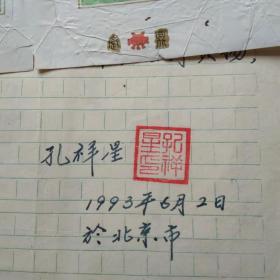 孔祥星
孔祥
星印
1993年6月2日
於北京市